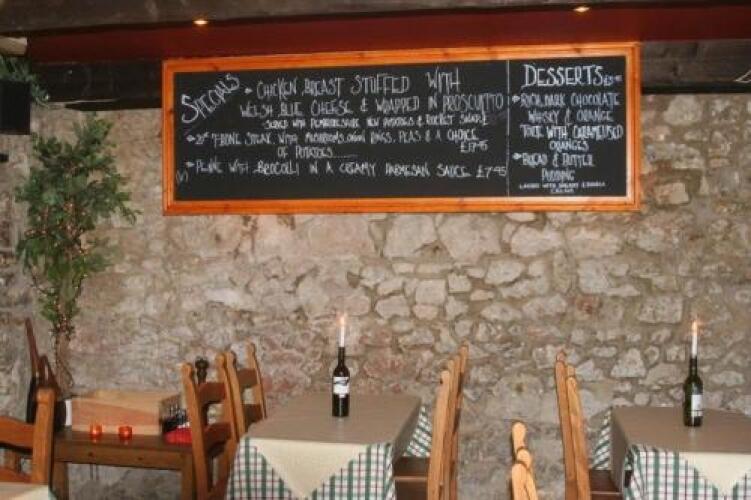 SPECIALS
CHICKEN BREAST STUFFED WITH
WELSH BLUE CHEESE & WRAPPED IN PROSCUITTO
SERVED WITH PEMBROKESHIRE NEW POTATOES & ROCKET
T-BONE STEAK WITH MUSHROOMS, ONION RINGS, PEAS & A CHOICE
OF POTATOES
(V) PENNE WITH BROCOLLI IN A CREAMY PARMESAN SAUCE £7.45
DESSERTS
RICH, DARK CHOCOLATE
WHISKY & ORANGE
TORTE WITH CARAMELISED
ORANGES
BREAD & BUTTER
PUDDING